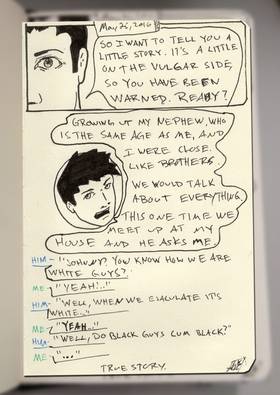 May, 25, 2016
SO I WANT TO TELL YOU A
LITTLE STORY. IT'S A LITTLE
ON THE VULGAR SIDE,
SO YOU HAVE BEEN
WARNED. READY?
GROWING UP MY NEPHEW, WHO
IS THE SAME AGE AS ME, AND
I WERE CLOSE.
LIKE BROTHERS.
WE WOULD TALK
ABOUT EVERYTHING.
THIS ONE TIME WE
MEET UP AT MY
HOUSE AND HE ASKS ME,
HIM- "JOHNNY? YOU KNOW HOW WE ARE
WHITE GUYS?"
ME- "YEAH!.."
HIM- "WELL, WHEN WE EJACULATE IT'S
WHITE..."
ME- "YEAH.."
HIM- "WELL, DO BLACK GUYS CUM BLACK?"
ME- "..."
TRUE STORY.